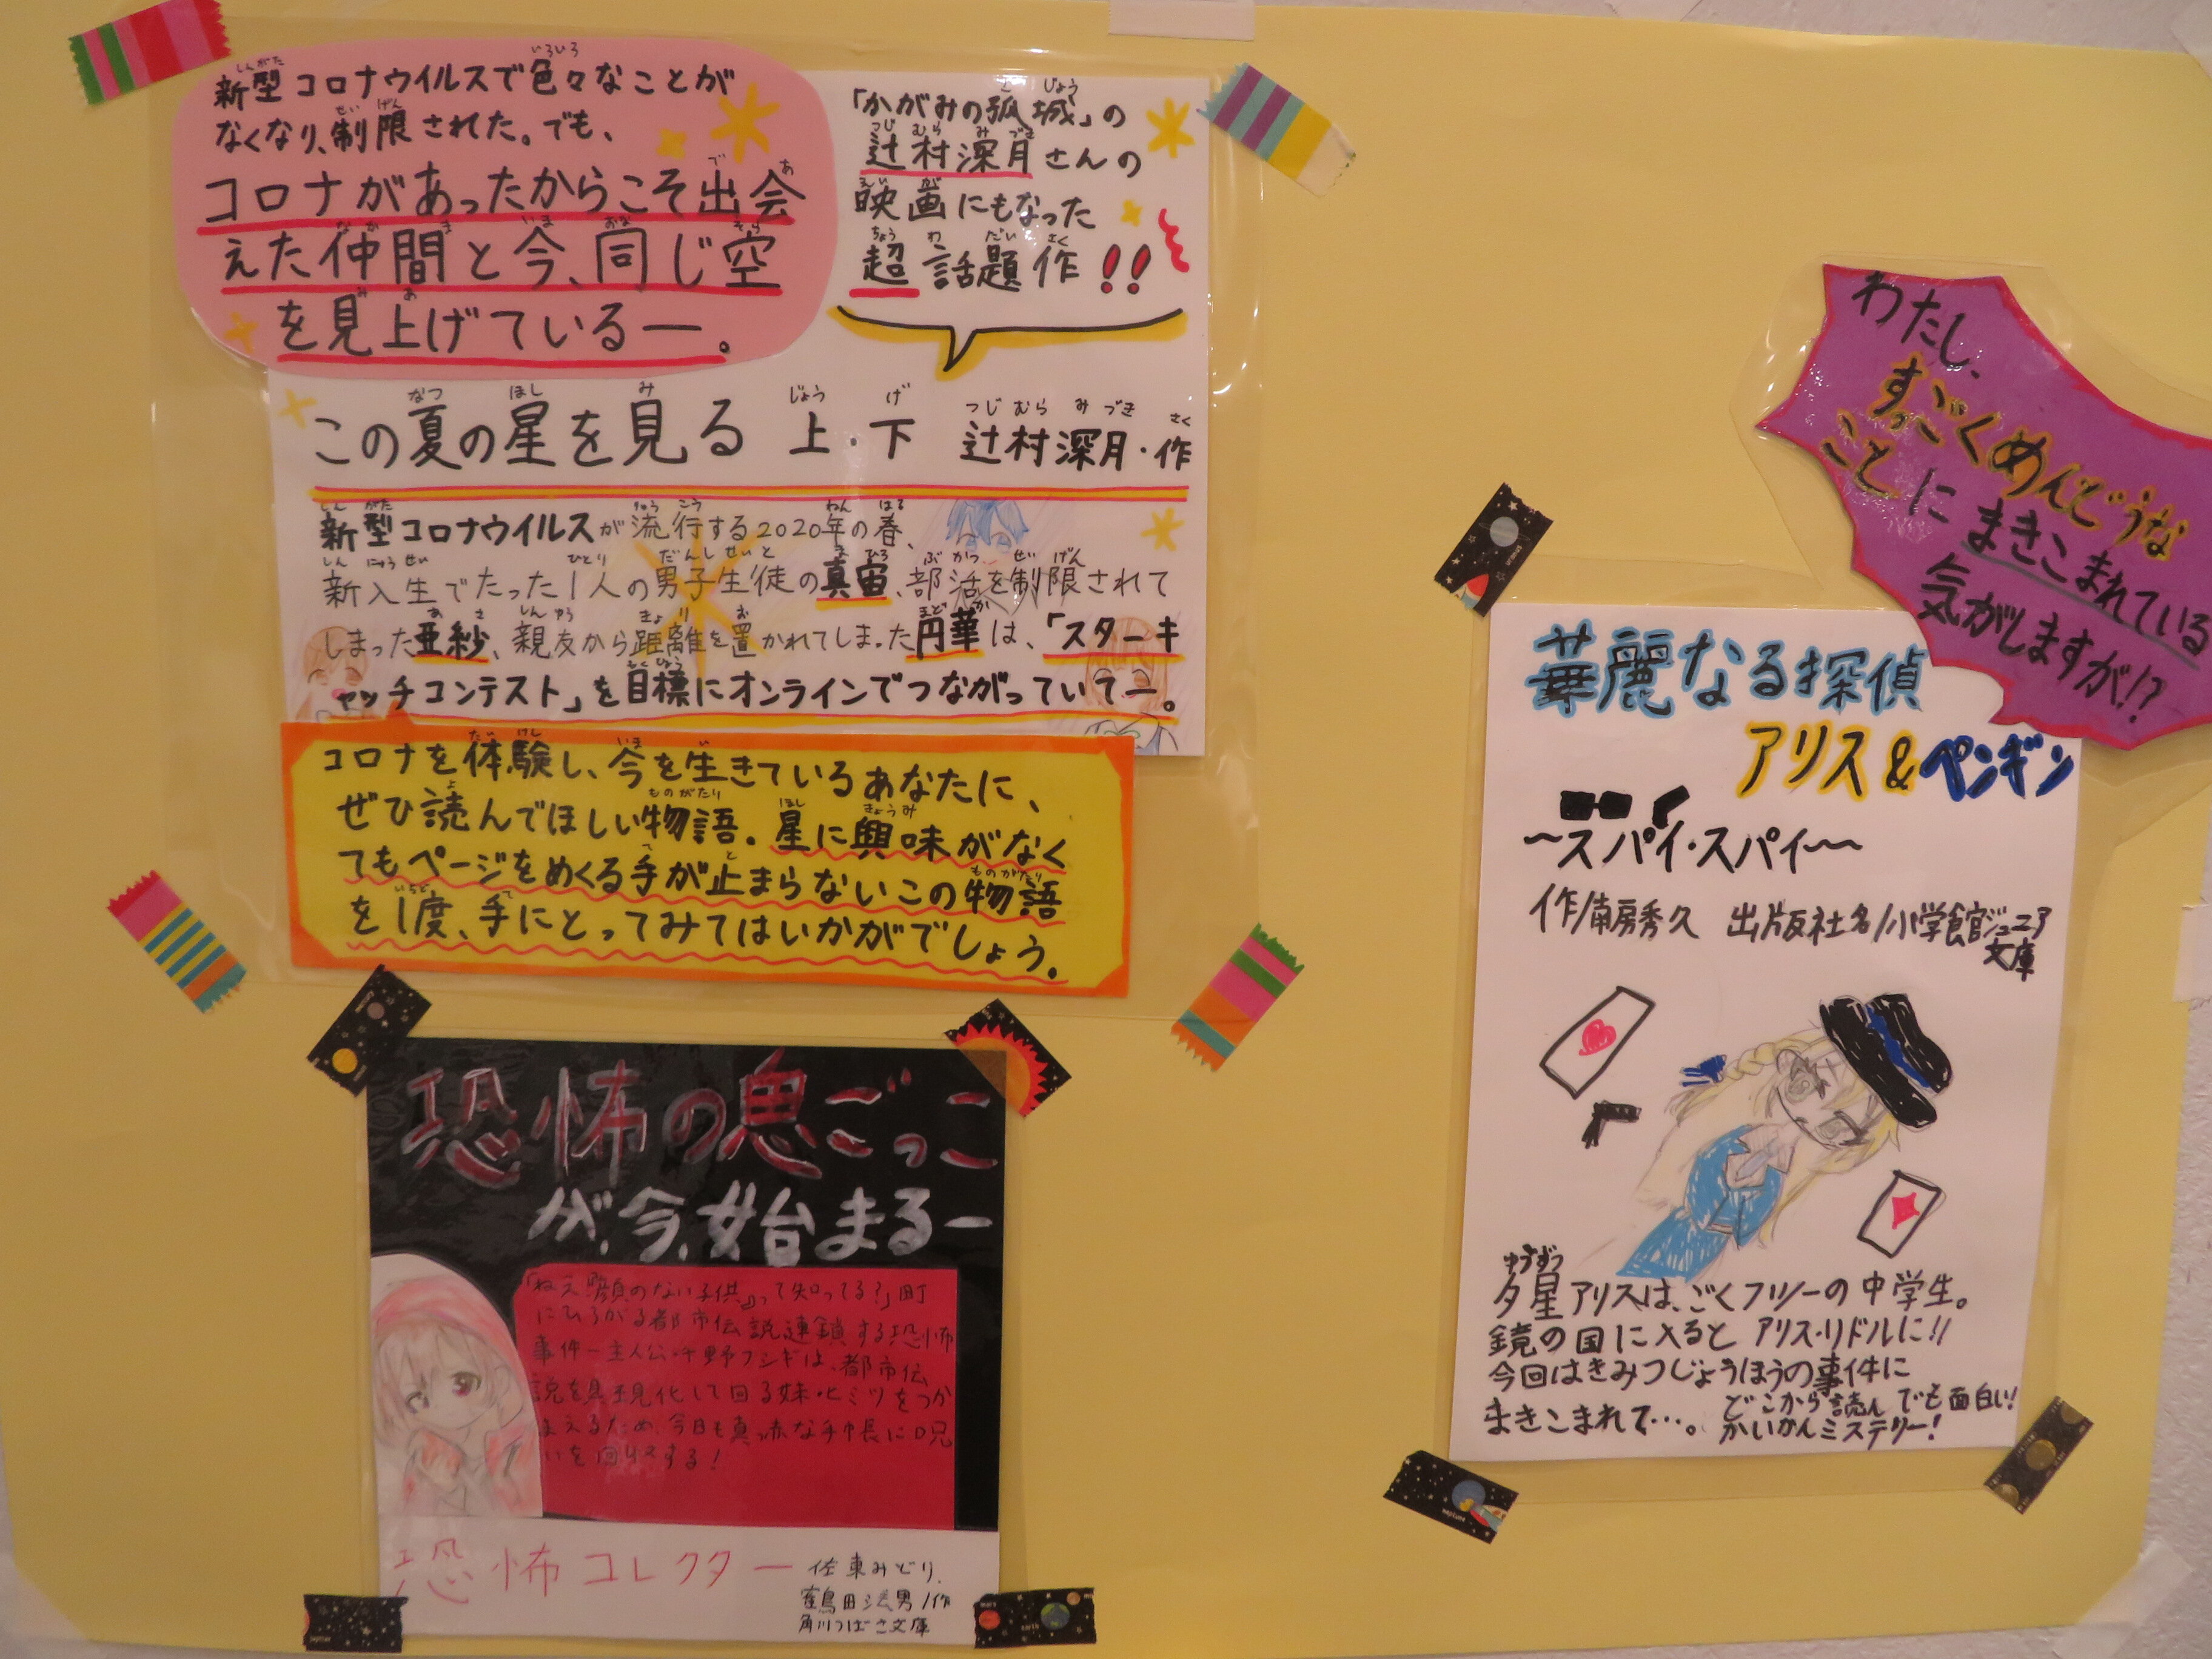 新型コロナウイルスで色々なことが
なくなり、制限された。でも、
コロナがあったからこそ出会
えた仲間と今、同じ空
を見上げているー。
「かがみの孤城」の
辻村深月さんの
映画にもなった
超話題作!!
この夏の星を見る 上・下 辻村深月・作
新型コロナウイルスが流行する2020年の春、
新入生でたった1人の男子生徒の真宙、部活を制限されて
しまった亜紗、親友から距離を置かれてしまった円華は、「スターキ
ャッチコンテスト」を目標にオンラインでつながっていてー。
コロナを体験し、今を生きているあなたに、
ぜひ読んでほしい物語。星に興味がなく
てもページをめくる手が止まらないこの物語
を1度、手にとってみてはいかがでしょう。
恐怖の鬼ごっこ
が、今、始まるー
「ねえ『顔のない子供』って知ってる?」町
にひろがる都市伝説連鎖する恐怖
事件ー主人公・千野フシギは、都市伝
説を具現化して回る妹・ヒミツをつか
まえるため、今日も真っ赤な手帳に呪
いを回収する!
恐怖コレクター 佐東みどり、
鶴田法男/作
角川つばさ文庫
わたし、
すっごくめんどうな
ことにまきこまれている
気がしますが!?
華麗なる探偵
アリス&ペンギン
〜スパイ・スパイ〜
作/南房秀久 出版社名/小学館ジュニア
文庫
夕星アリスは、ごくフツーの中学生。
鏡の国に入ると アリス・リドルに!!
今回はきみつじょうほうの事件に
まきこまれて…。どこから読んでも面白い!
かいかんミステリー!